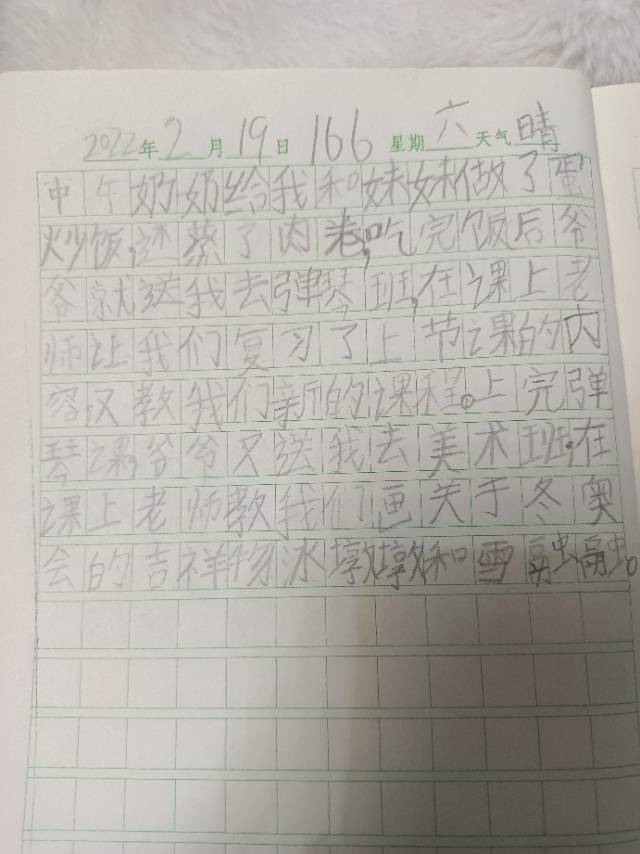 2022年2月19日 166 星期六天气晴
中午奶奶给我和妹妹做了蛋
炒饭,还蒸了肉卷,吃完饭后爷
爷就送我去弹琴班,在课上老
师让我们复习了上节课的内
容又教我们新的课程。上完弹
琴课,爷爷又送我去美术班,在
课上老师教我们画关于冬奥
会的吉祥物冰墩墩和雪融融。